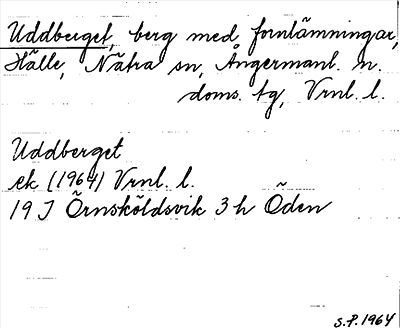 Uddberget, berg med fornlämningar,
Hälle, Nätra sn, Ångermanl. n.
doms. tg, Vrnl. l.
Uddberget
ek (1964) Vrnl. l.
19 J Örnsköldsvik 3 h Öden
S.P. 1964